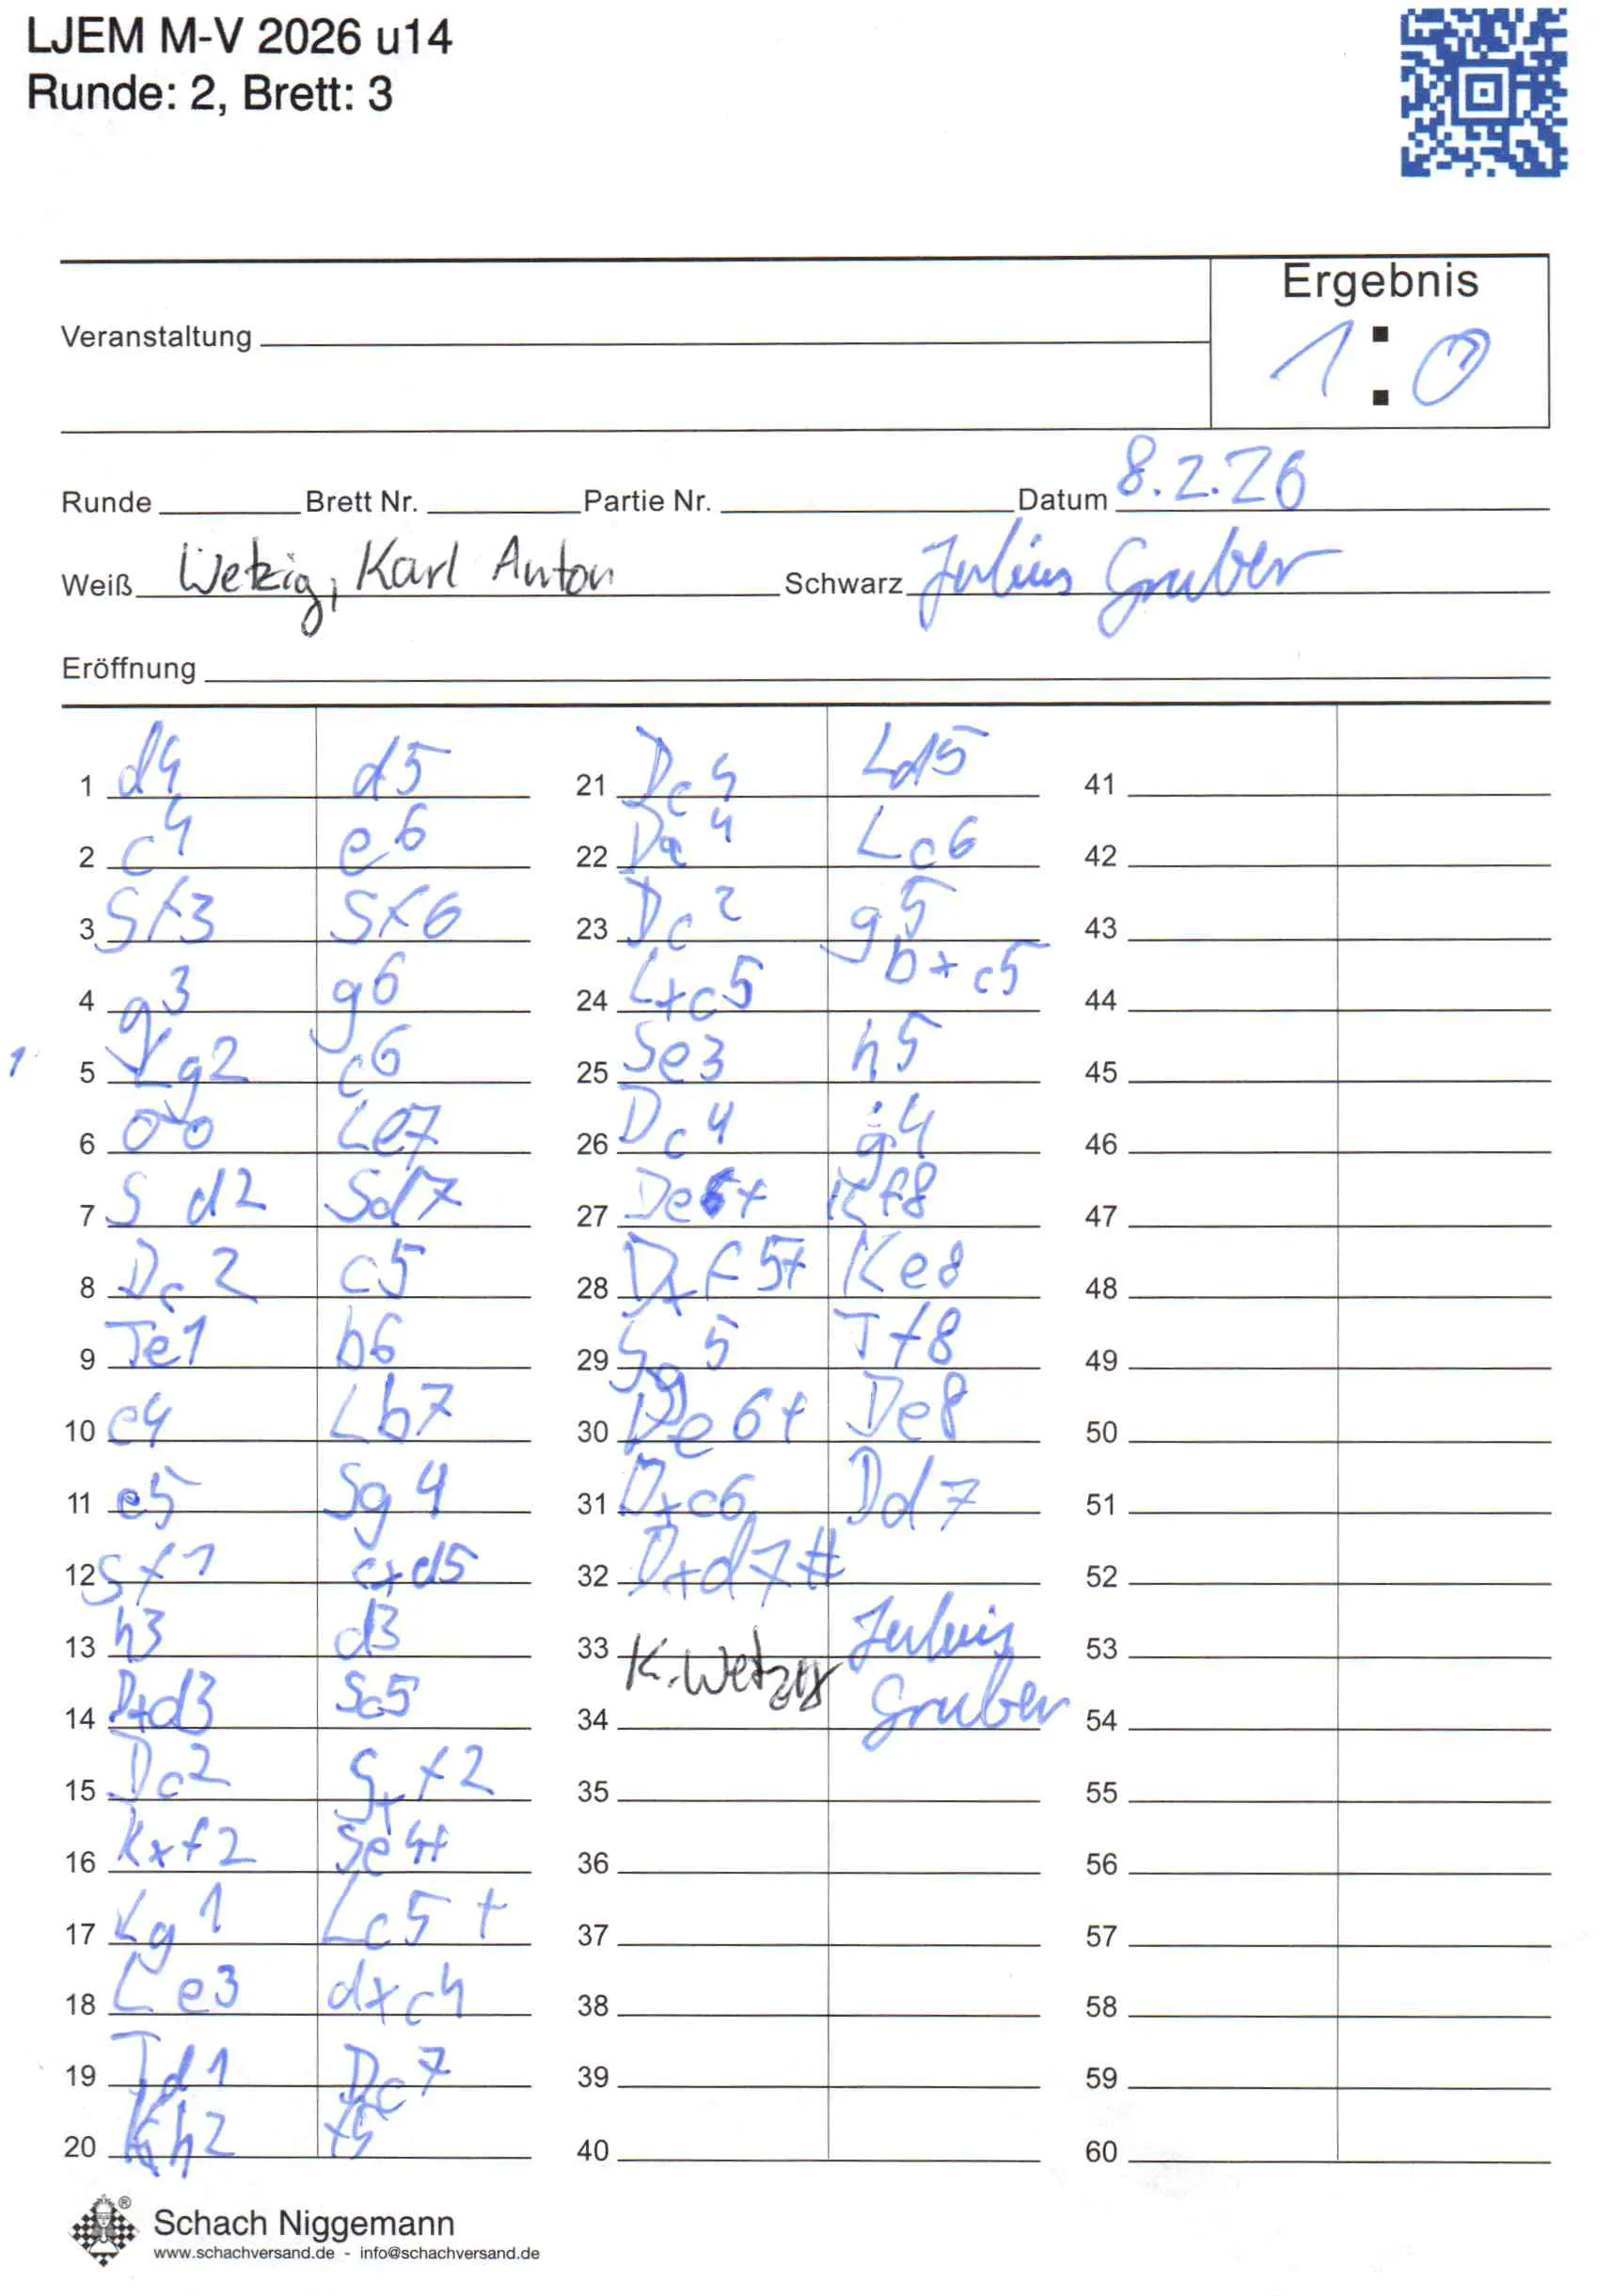 LJEM M-V 2026 u14
Runde: 2, Brett: 3
Ergebnis
1:0
Veranstaltung
Runde Brett Nr. Partie Nr. Datum 8.2.26
Weiß Wetzig, Karl Anton Schwarz Julius Gruber
Eröffnung
1 d4 d5 21 Dc4 Ld5 41
2 c4 e6 22 Da4 Lc6 42
3 Sf3 Sf6 23 Dc2 g5 43
4 g3 g6 24 Lxc5 bxc5 44
5 Lg2 c6 25 Se3 h5 45
6 0-0 Le7 26 Dc4 g4 46
7 Sd2 Sd7 27 De6+ Kf8 47
8 Dc2 c5 28 Dxf5+ Ke8 48
9 Te1 b6 29 Sg5 Tf8 49
10 e4 Lb7 30 De6+ De8 50
11 e5 Sg4 31 Dxc6 Dd7 51
12 Sf1 cxd5 32 Dxd7# 52
13 h3 d3 33 K. Wetzig Julius 53
14 Dxd3 Sc5 34 Gruber 54
15 Dc2 Sxf2 35 55
16 Kxf2 Se4+ 36 56
17 Kg1 Lc5+ 37 57
18 Le3 dxc4 38 58
19 Td1 Dc7 39 59
20 Kh2 f5 40 60
Schach Niggemann
www.schachversand.de - info@schachversand.de